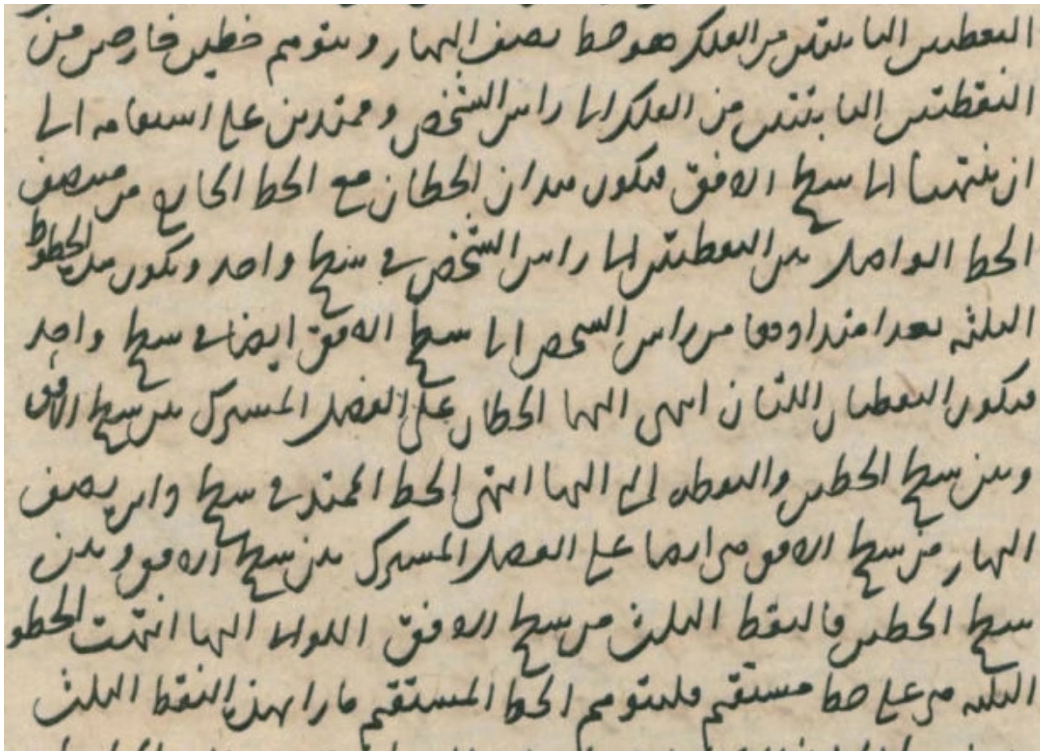 النقطتين الثابتتين من الفلك هو خط نصف النهار ونتوهم خطين خارجين من
النقطتين الثابتتين من الفلك الى راس الشخص وممتدين على استقامه الى
ان ينتهيا الى سطح الافق فيكون هذان الخطان مع الخط الخارج من منتصف
الخط الواصل بين النقطتين الى راس الشخص في سطح واحد وتكون هذه الخطوط
الثلثه بعد امتدادها من راس الشخص الى سطح الافق ايضا في سطح واحد
فتكون النقطتان اللتان انتهى اليهما الخطان على الفصل المشترك بين سطح الافق
وبين سطح الخطين والنقطه التي اليها انتهى الخط الممتد في سطح دايره نصف
النهار من سطح الافق هي ايضا على الفصل المشترك بين سطح الافق وبين
سطح الخطين فالنقط الثلث من سطح الافق اللواتي اليها انتهت الخطوط
الثلثه هي على خط مستقيم فليتوهم الخط المستقيم مارا بهذه النقط الثلث